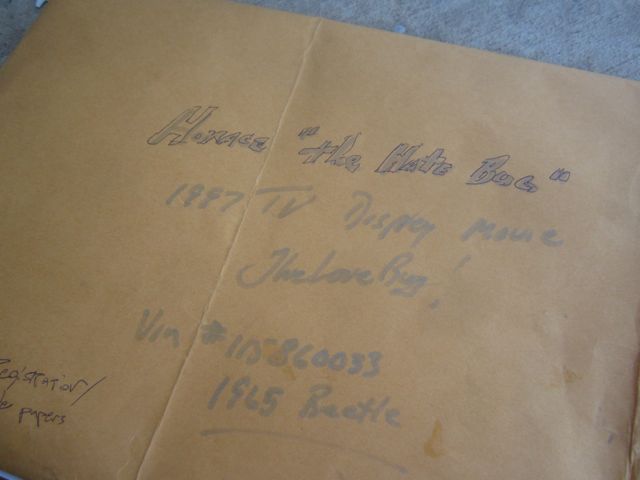 Horace "the Hate Bug"
1997 TV Disney Movie
The Love Bug!
Vin #115860033
1965 Beetle
egistration/
le papers